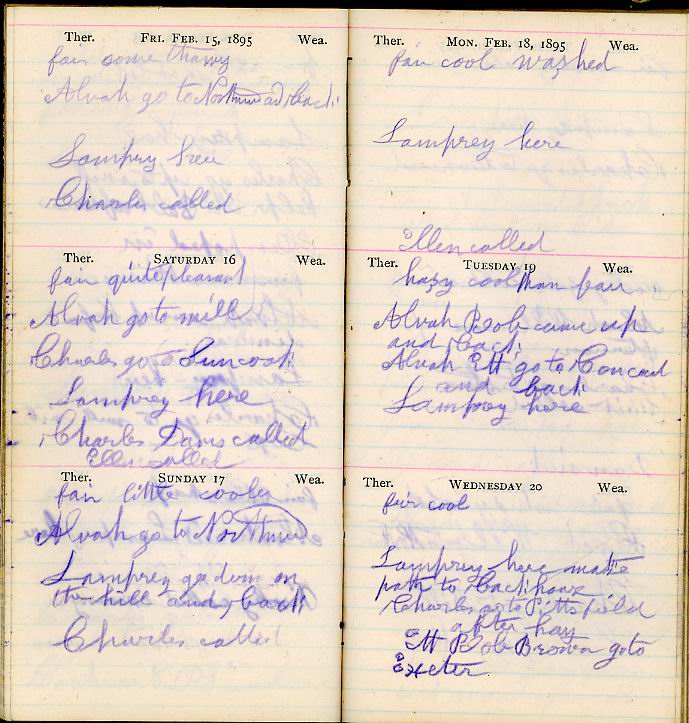 Ther. FRI. FEB. 15, 1895 Wea.
fair some thawy
Alvah go to Northwood & back
Lamprey here
Charles called
Ther. SATURDAY 16 Wea.
fair quite pleasant
Alvah go to mill
Charles go to Suncook
Lamprey here
Charles Davis called
Ellen called
Ther. SUNDAY 17 Wea.
fair little cooler
Alvah go to Northwood
Lamprey go down on
the hill and back
Charles called
Ther. MON. FEB. 18, 1895 Wea.
fair cool washed
Lamprey here
Ellen called
Ther. TUESDAY 19 Wea.
hazy cool than fair
Alvah Bob came up
and back
Alvah Ett go to Concord
and back
Lamprey here
Ther. WEDNESDAY 20 Wea.
fair cool
Lamprey here make
path to back house
Charles go to Pittsfield
after hay
Ett Bob Brown go to
Exeter